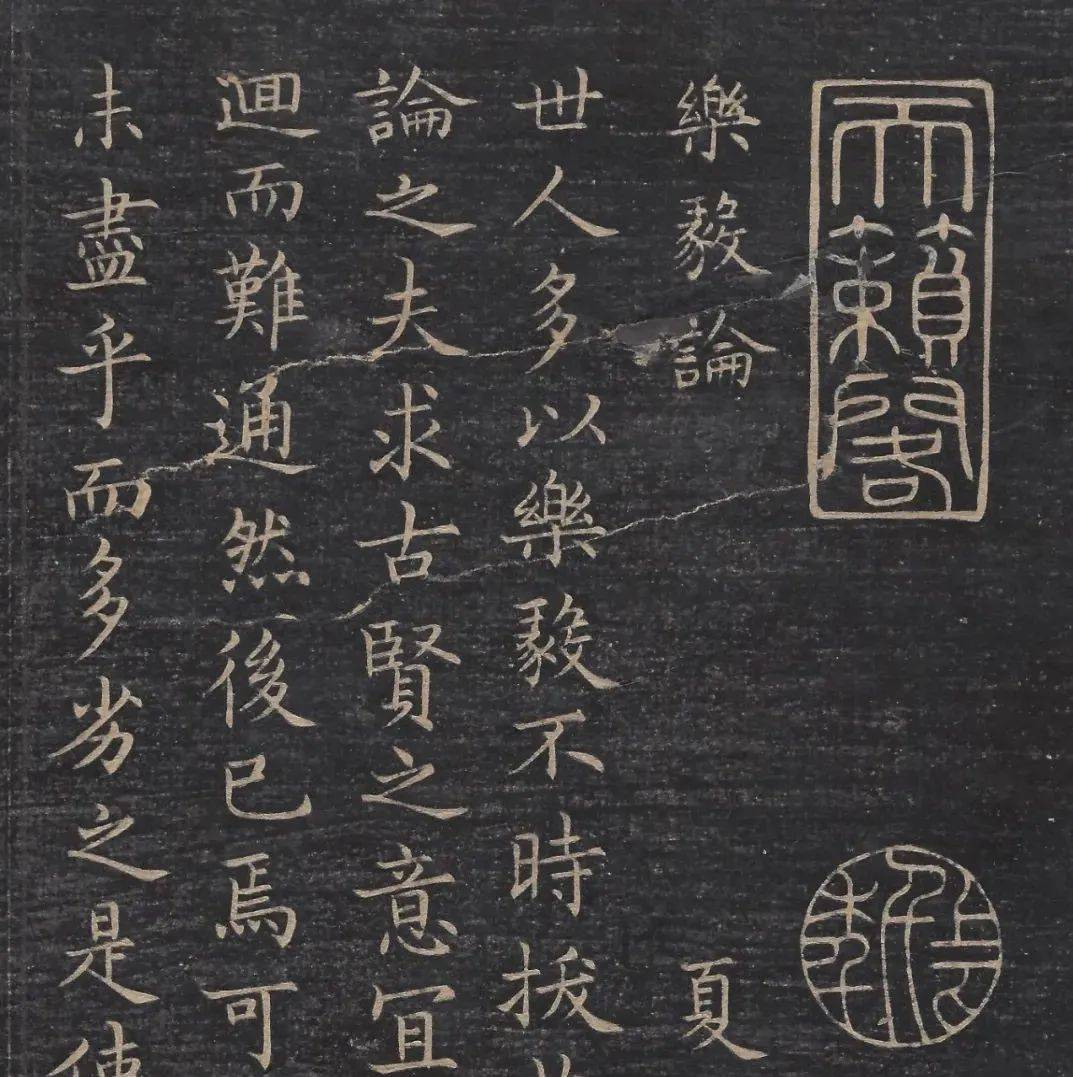 天籟閣
樂毅論 夏
世人多以樂毅不時拔
論之夫求古賢之意宜
迴而難通然後已焉可
未盡乎而多劣之是使